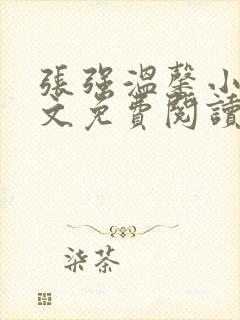 張強溫馨小
文免費閱讀
柒茶